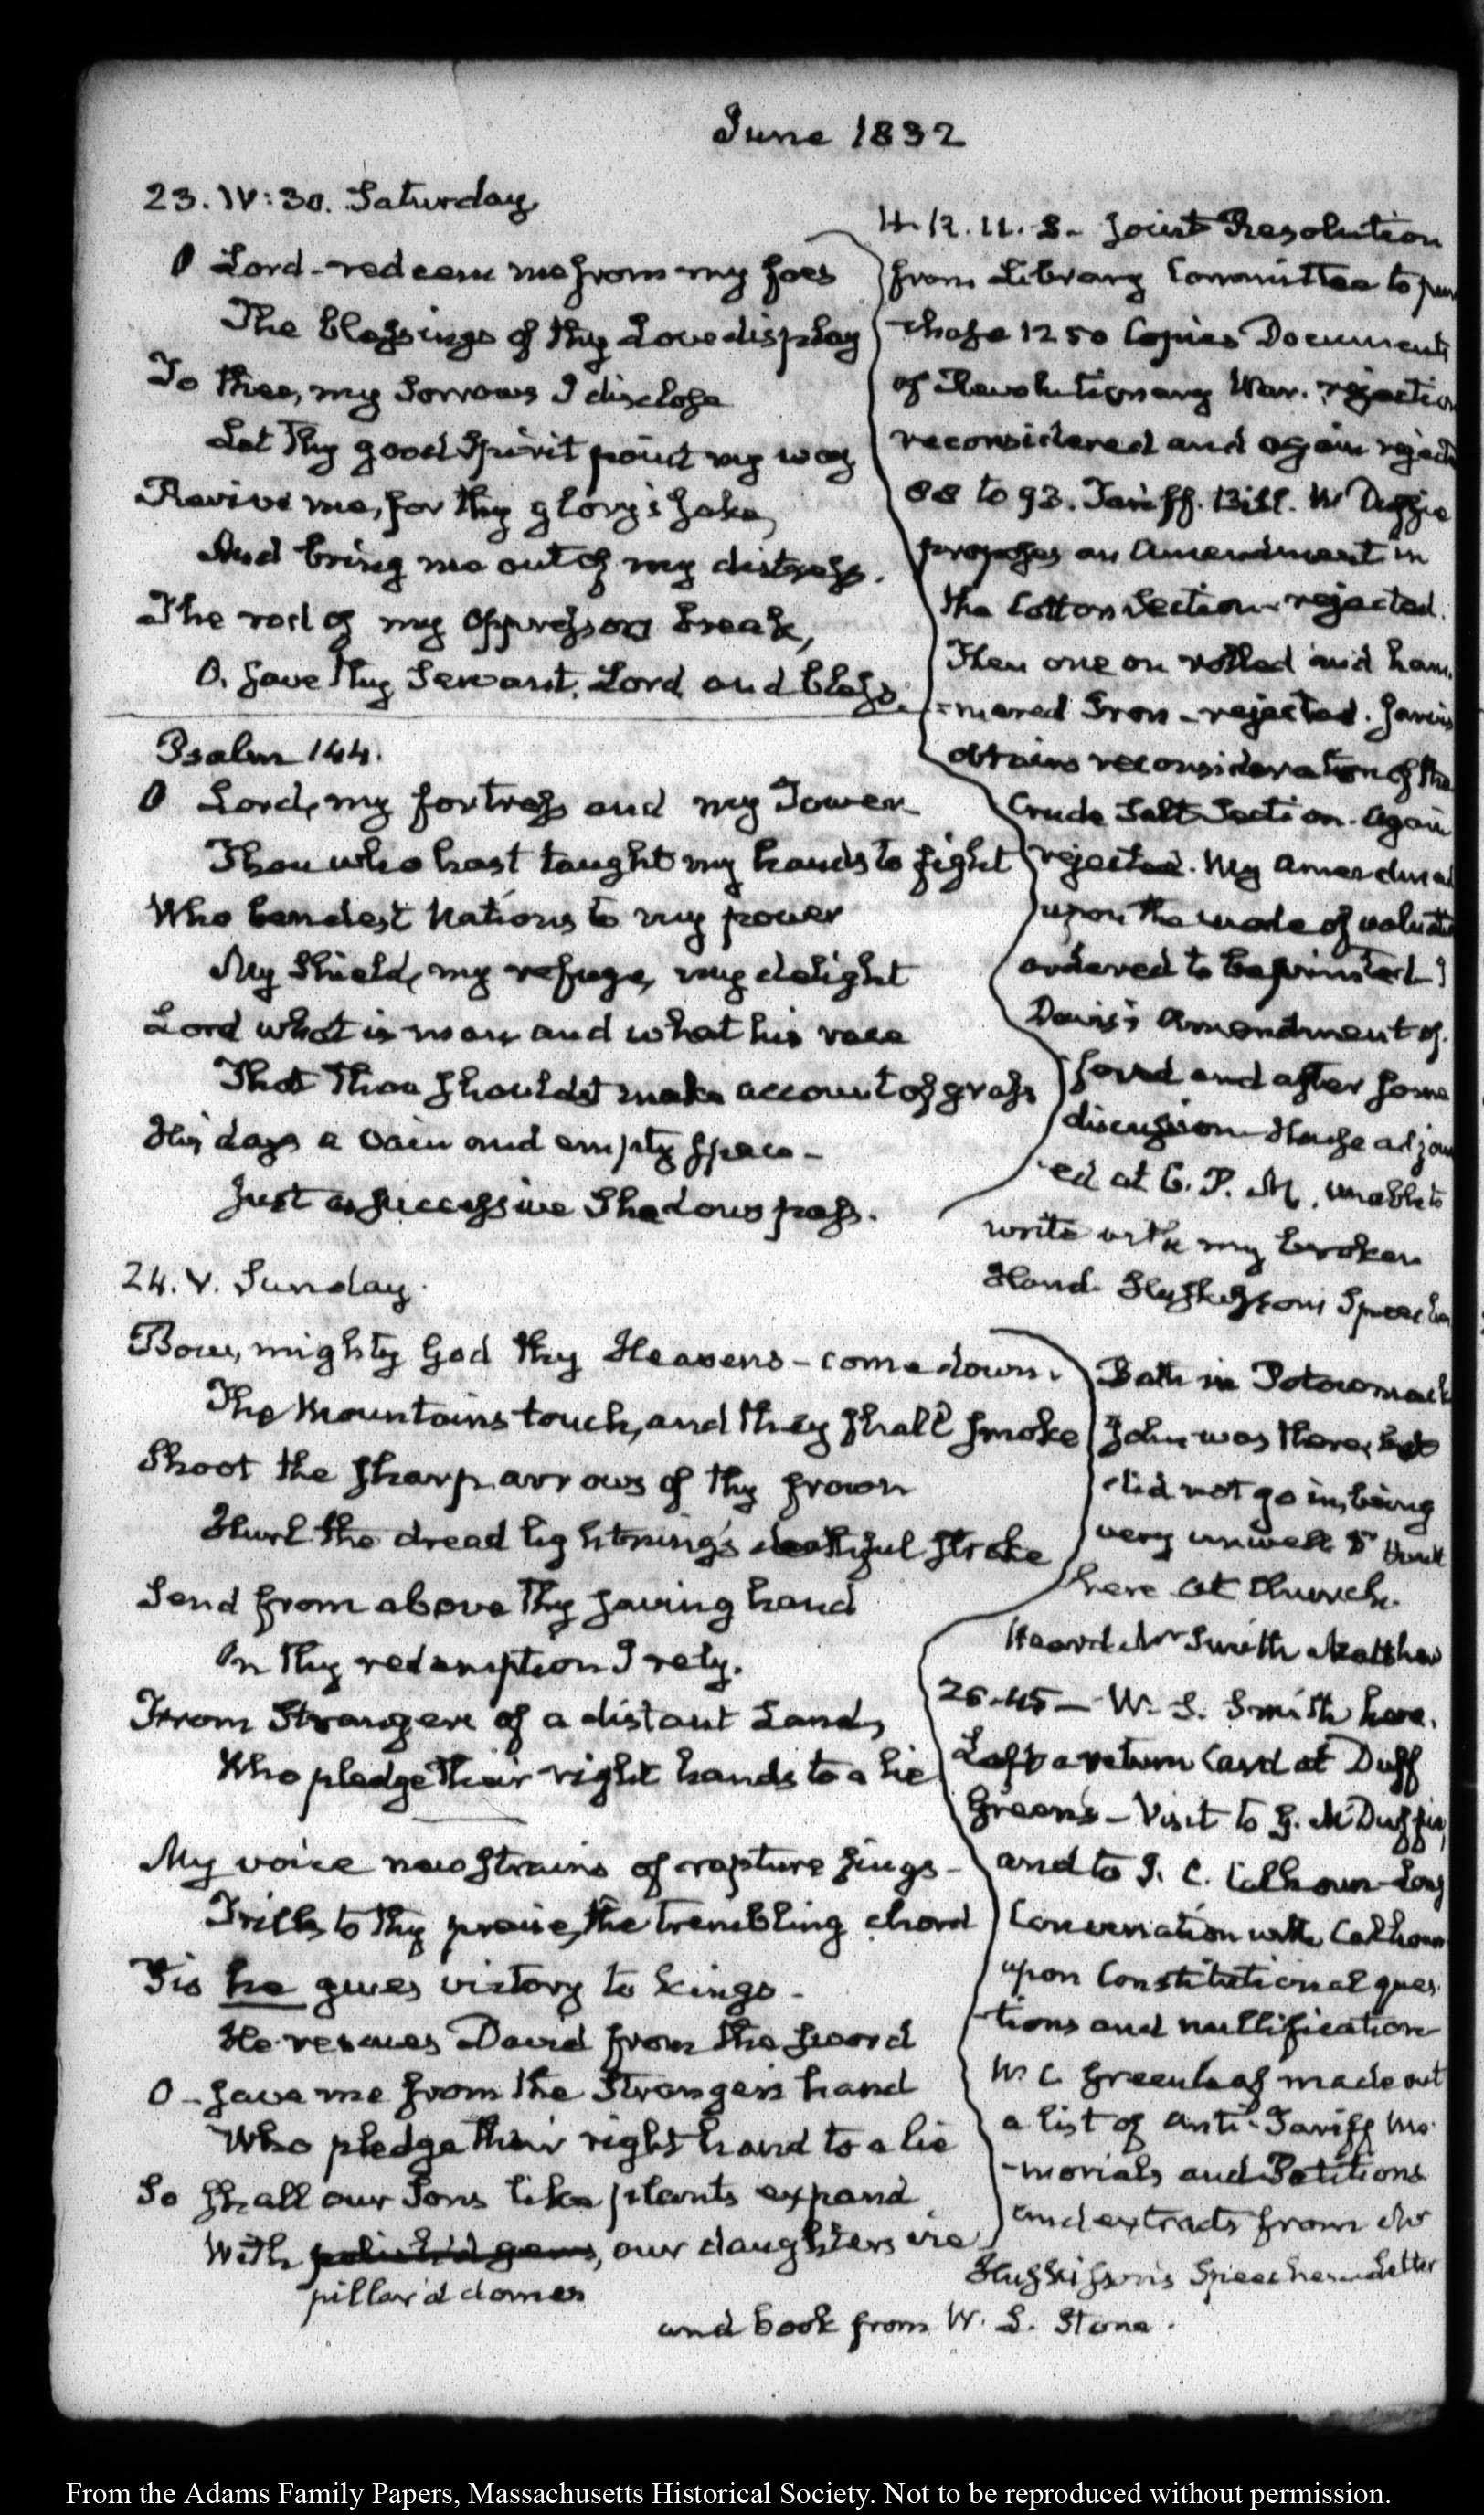 June 1832
23. IV:30. Saturday
O Lord - redeem me from my foes
The blessings of thy Love display
To thee, my Sorrows I disclose
Let Thy good Spirit point my way
Revive me, for thy glory's sake,
And bring me out of my distress.
The rod of my Oppressors break,
O, save thy Servant, Lord and bless.
Psalm 144.
O Lord, my fortress and my Tower
Thou who hast taught my hands to fight
Who bendest Nations to my power
My Shield, my refuge, my delight
Lord what is man and what his race
That Thou shouldst make account of grass
His days a vain and empty space -
Just as successive Shadows pass.
H. R. U. S. - Joint Resolution
from Library Committee to pur
chase 1250 Copies Documents
of Revolutionary War. rejection
reconsidered and again rejected
88 to 93. Tariff Bill. McDuffie
proposes an Amendment in
the Cotton Section rejected.
Then one on rolled and ham
=mered Iron - rejected. Jarvis
obtains reconsideration of the
Crude Salt Section. Again
rejected. My Amendment
upon the mode of valuation
ordered to be printed
Davis's Amendment of
fered and after some
discussion House adjour
ed at 6. P. M. unable to
write with my broken
Hand. Huskisson's Speeches
24. V. Sunday.
Bow, mighty God thy Heavens - come down.
The Mountains touch, and they shall smoke
Shoot the sharp arrows of thy frown
Hurl the dread lightning's deathful stroke
Send from above Thy saving hand
On Thy redemption I rely.
From Strangers of a distant Land,
Who pledge their right hands to a lie
My voice new strains of rapture sings -
Trills to thy praise, the trembling chord
Tis he gives victory to kings -
He rescues David from the sword
O - save me from the Strangers hand
Who pledge their right hand to a lie
So shall our Sons like plants expand
With polish'd gems, our daughters vie
pillar'd domes
Bath in Potowmack
John was there, but
did not go in, being
very unwell Dr Hunt
here at Church.
Heard Mr Smith Matthew
26.45 - W. S. Smith here.
Left a return Card at Duff
Green's - Visit to G. McDuffie,
and to J. C. Calhoun - Long
Conversation with Calhoun
upon Constitutional ques
-tions and nullification
W C Greenleaf made out
a list of Anti-Tariff Me
-morials and Petitions
and extracts from Mr
Huskisson's Speeches Letter
and book from W. L. Stone.
From the Adams Family Papers, Massachusetts Historical Society. Not to be reproduced without permission.